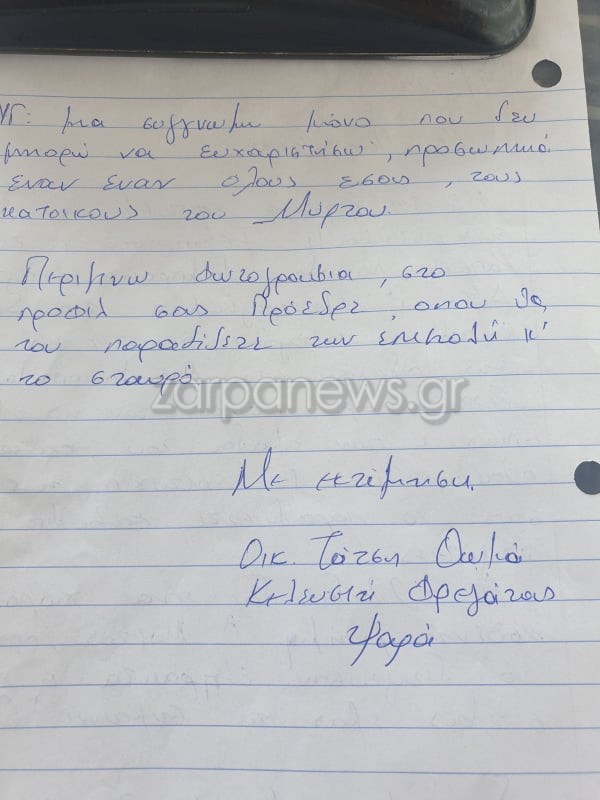 ΥΓ: μια συγγνώμη μόνο που δεν
μπορώ να ευχαριστήσω, προσωπικά
έναν έναν όλους εσας, τους
κατοικους του Μύρτου.
Περιμενω φωτογραφια, στο
προφιλ σας Πρόεδρε, οπου θα
του παραδίδετε την επιστολή κ'
το σταυρό
zarpanews.gr
Με εκτίμηση.
Οικ. Τάτση Θωμά
Κελευστή Φρεγάτας
Ψαρά